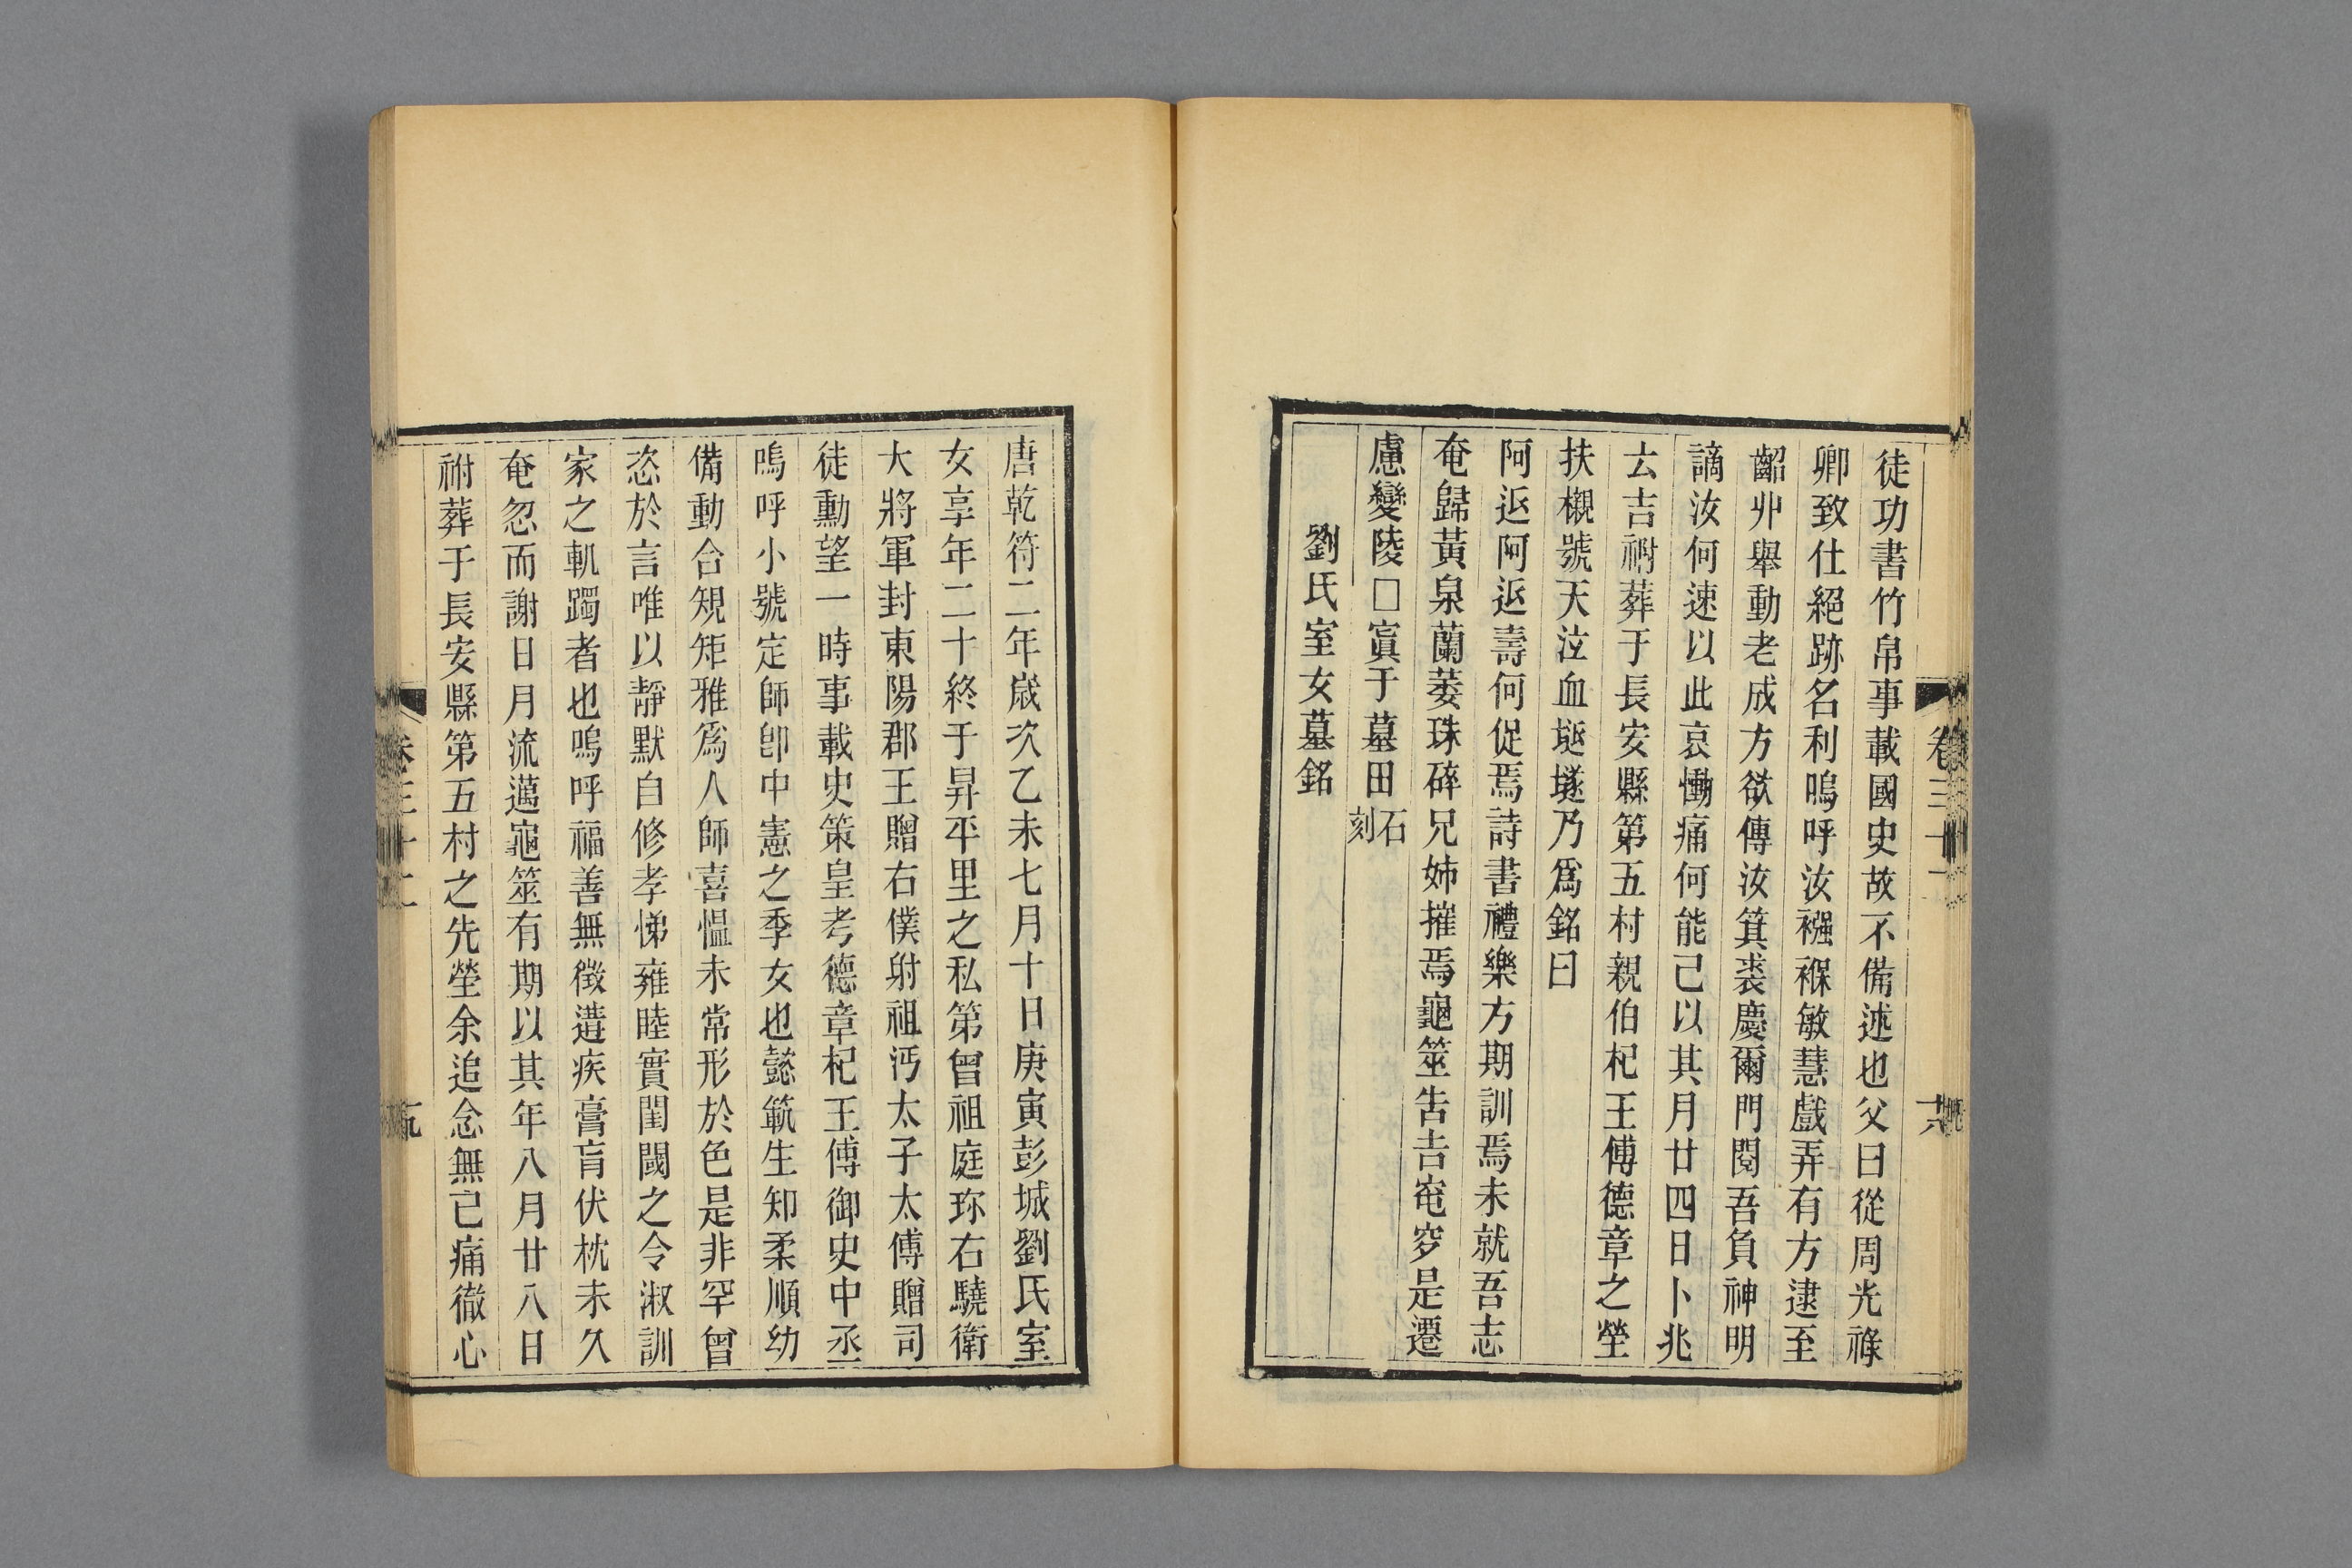 徒功書竹帛事載國史故不備述也父曰從周光祿
卿致仕絕跡名利嗚呼汝襁褓敏慧戲弄有方逮至
齠丱舉動老成方欲傳汝箕裘慶爾門閥吾負神明
謫汝何速以此哀慟痛何能已以其月廿四日卜兆
厺吉祔葬于長安縣第五村親伯杞王傅德章之塋
扶櫬號天泣血埏墜乃爲銘曰
阿返阿返壽何促焉詩書禮樂方期訓焉未就吾志
奄歸黃泉蘭萎珠碎兄姊摧焉龜筮吿吉窀穸是遷
慮變陵□寘于墓田石刻
劉氏室女墓銘
唐乾符二年歲次乙未七月十日庚寅彭城劉氏室
女享年二十終于昇平里之私第曾祖庭珎右驍衛
大將軍封東陽郡王贈右僕射祖沔太子太傅贈司
徒勳望一時事載史策皇考德章杞王傅御史中丞
嗚呼小號定師卽中憲之季女也懿範生知柔順幼
備動合規矩雅爲人師喜慍未常形於色是非罕曾
恣於言唯以靜默自修孝悌雍睦實閨閫之令淑訓
家之軌躅者也嗚呼福善無徵遘疾膏肓伏枕未久
奄忽而謝日月流邁龜筮有期以其年八月廿八日
祔葬于長安縣第五村之先塋余追念無已痛徹心
卷三十
卷三十